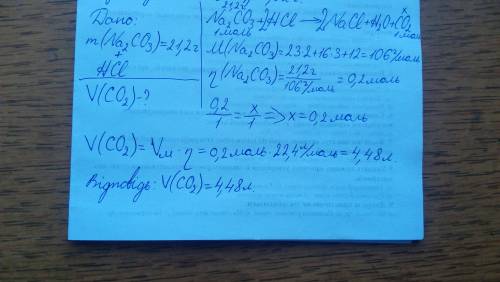 Дано:
m(Na₂CO₃)=21,2г
+
HCl
V(CO₂)-?
21,2г x
Na₂CO₃+2HCl→2NaCl+H₂O+CO₂
1моль 1моль
M(Na₂CO₃)=23·2+16·3+12=106г/моль
η(Na₂CO₃)=21,2г/106г/моль=0,2моль
0,2/1=x/1=>x=0,2моль
V(CO₂)=Vм·η=0,2моль·22,4л/моль=4,48л.
Відповідь: V(CO₂)=4,48л.